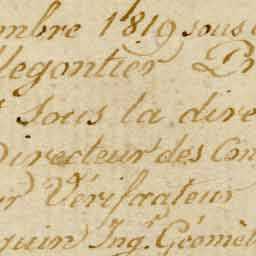 mbre 1819 sous
legontier Pr
sous la dire
Directeur des Con
r Vérificateur
quin Ingr. Géomèt